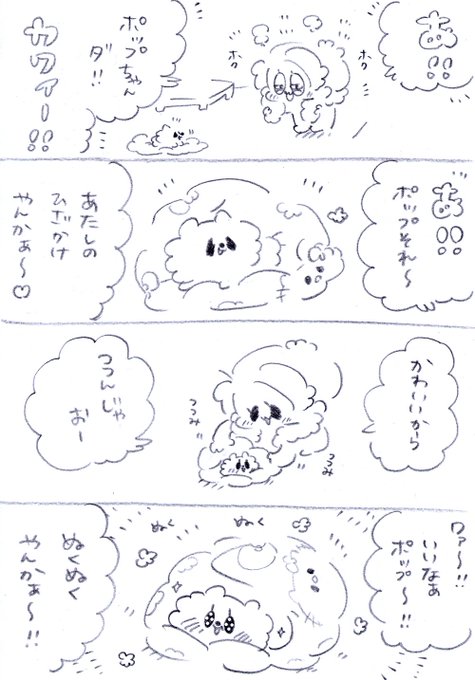 あ!!
ホク
ホク
ポップちゃん
ダ!!
カワイー!!
あ!!!
ポップそれ〜
あたしの
ひざかけ
やんかぁ〜♡
かわいいから
つつみ
つつみ
つつんじゃ
おー
ワァ〜!!
いいなぁ
ポップ〜!!
ぬく
ぬく
ぬくぬく
やんかぁ〜!!